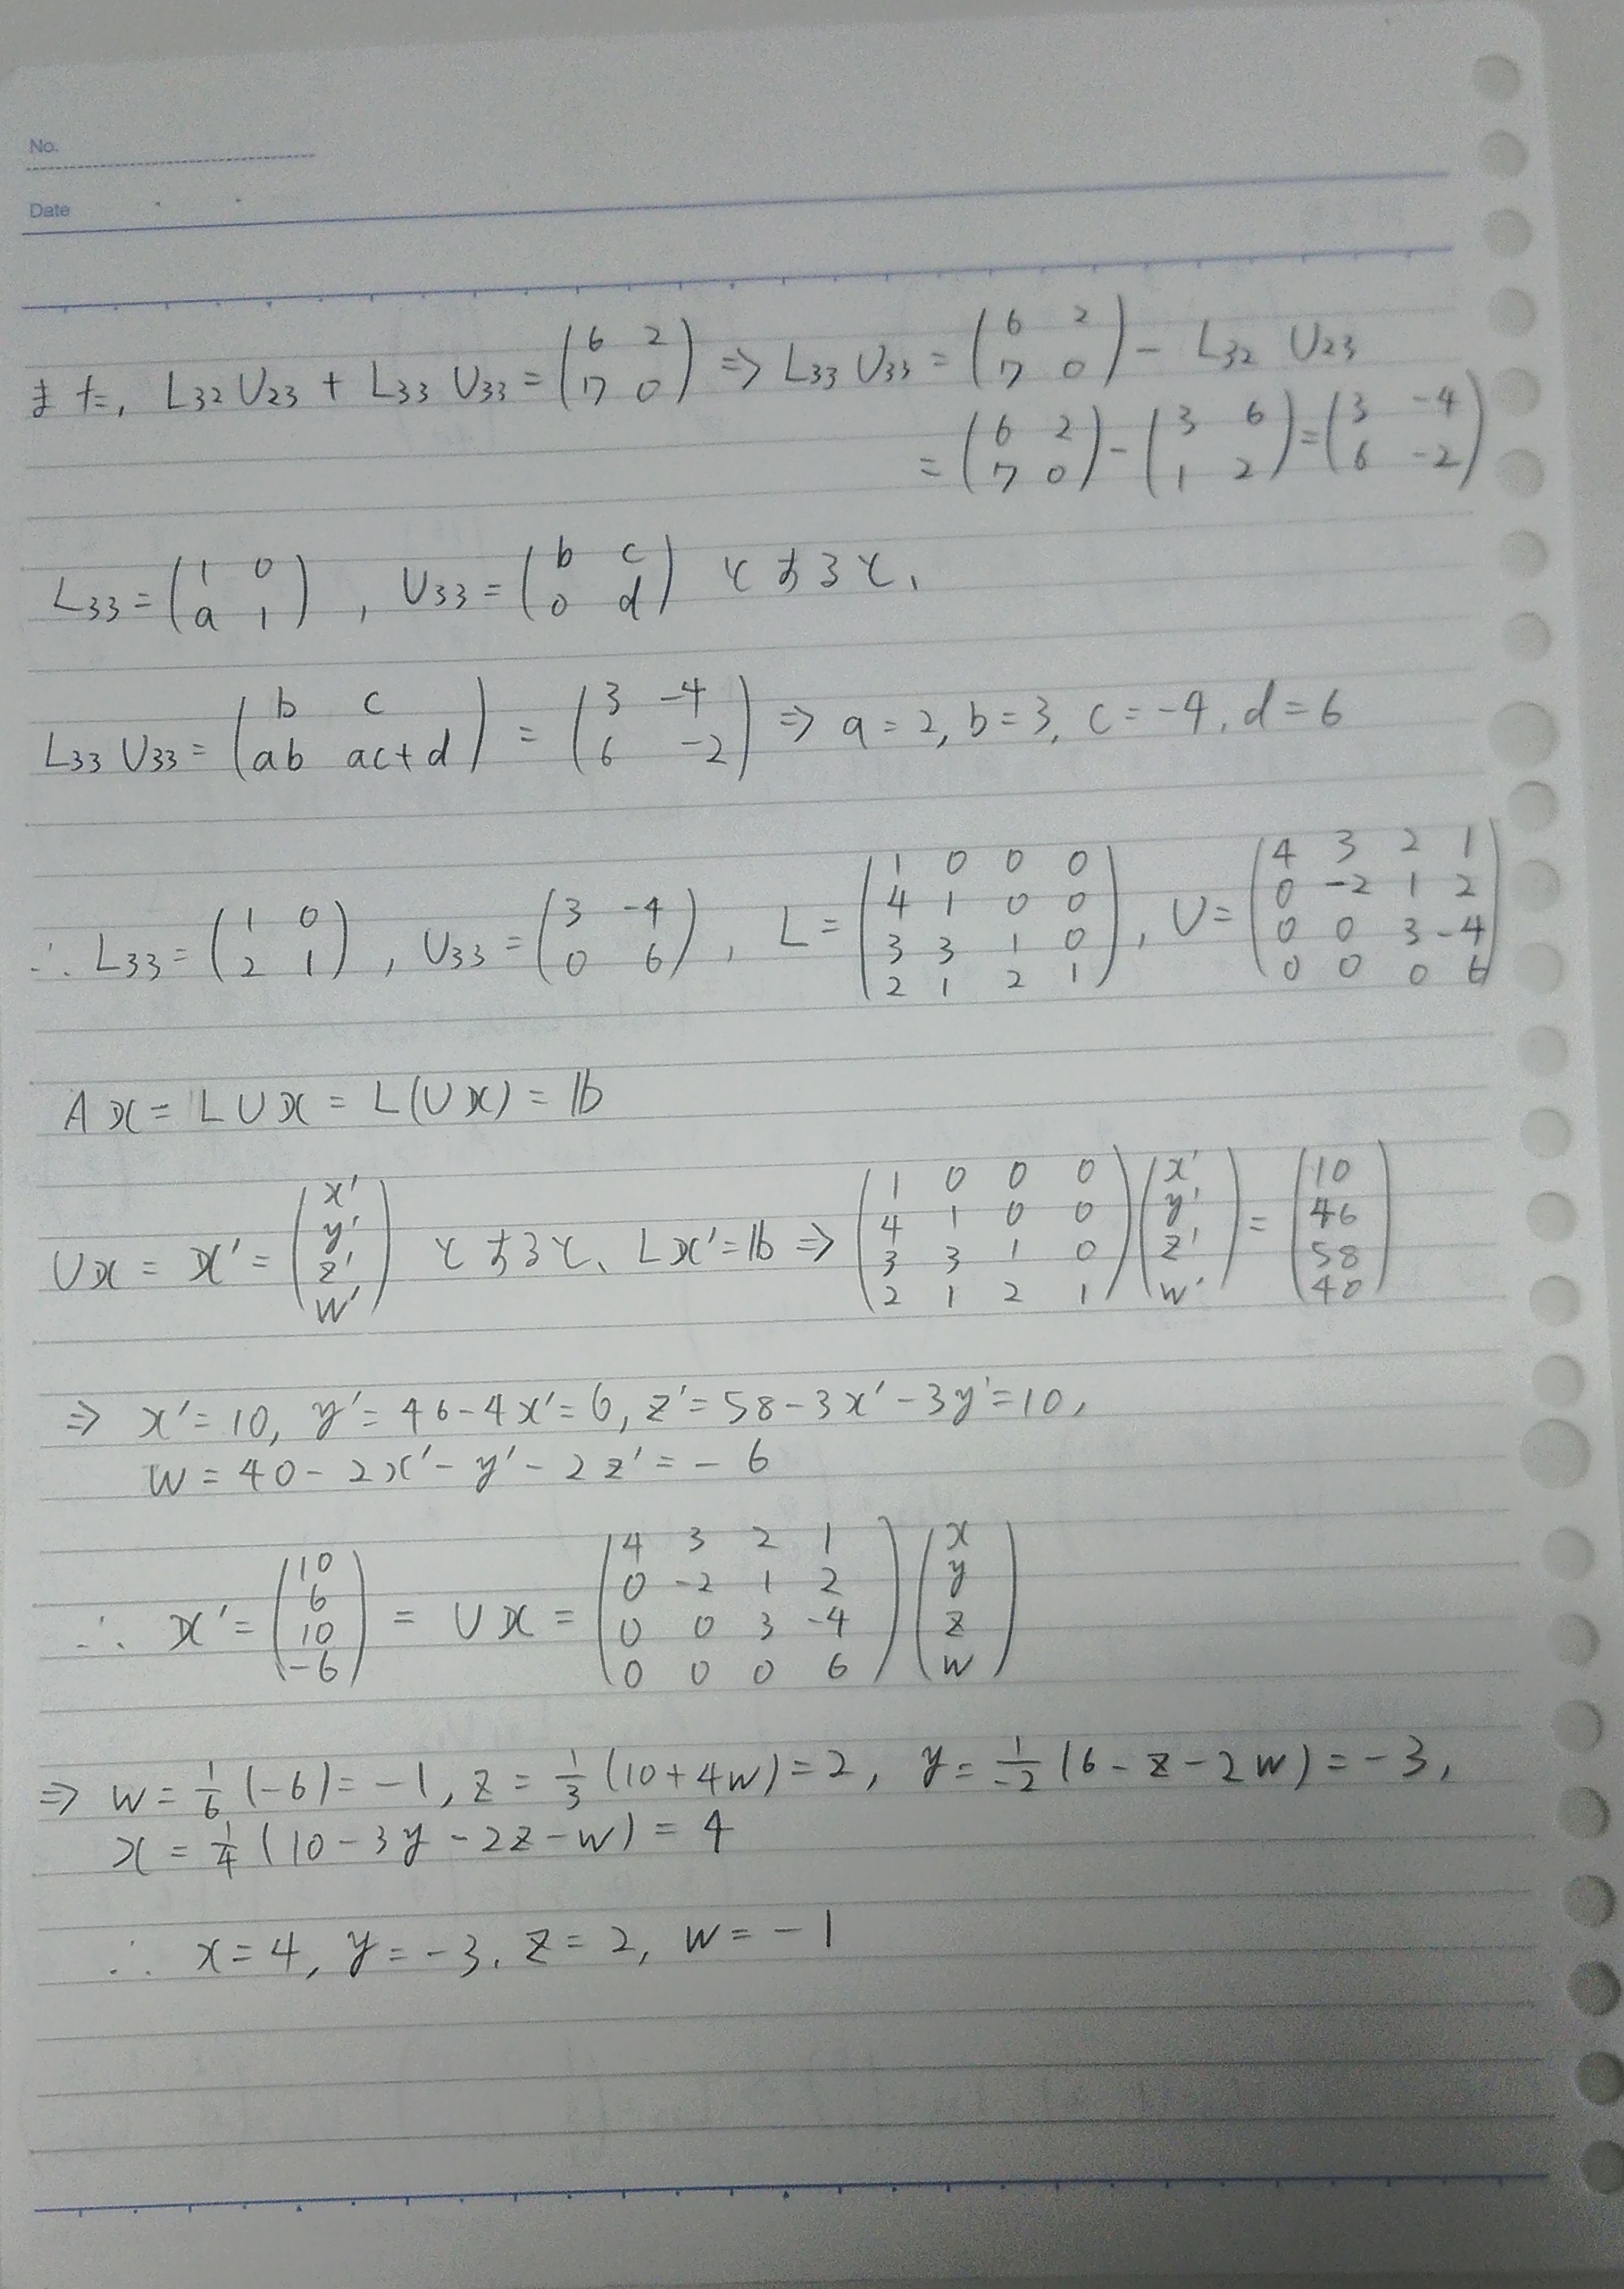 No.
Date
また, L₃₂U₂₃ + L₃₃U₃₃ = (6 2 ; 7 0) ⇒ L₃₃U₃₃ = (6 2 ; 7 0) - L₃₂ U₂₃
= (6 2 ; 7 0) - (3 6 ; 1 2) = (3 -4 ; 6 -2)
L₃₃ = (1 0 ; a 1), U₃₃ = (b c ; 0 d) とすると,
L₃₃U₃₃ = (b c ; ab ac+d) = (3 -4 ; 6 -2) ⇒ a=2, b=3, c=-4, d=6
∴ L₃₃ = (1 0 ; 2 1), U₃₃ = (3 -4 ; 0 6), L = (1 0 0 0 ; 4 1 0 0 ; 3 3 1 0 ; 2 1 2 1), U = (4 3 2 1 ; 0 -2 1 2 ; 0 0 3 -4 ; 0 0 0 6)
A𝕩 = LU𝕩 = L(U𝕩) = 𝕓
U𝕩 = 𝕩' = (x' ; y' ; z' ; w') とすると、L𝕩' = 𝕓 ⇒ (1 0 0 0 ; 4 1 0 0 ; 3 3 1 0 ; 2 1 2 1)(x' ; y' ; z' ; w') = (10 ; 46 ; 58 ; 40)
⇒ x'=10, y'=46-4x'=6, z'=58-3x'-3y'=10,
w=40-2x'-y'-2z'=-6
∴ 𝕩' = (10 ; 6 ; 10 ; -6) = U𝕩 = (4 3 2 1 ; 0 -2 1 2 ; 0 0 3 -4 ; 0 0 0 6)(x ; y ; z ; w)
⇒ w = 1/6 (-6) = -1, z = 1/3 (10+4w) = 2, y = 1/-2 (6-z-2w) = -3,
x = 1/4 (10-3y-2z-w) = 4
∴ x=4, y=-3, z=2, w=-1